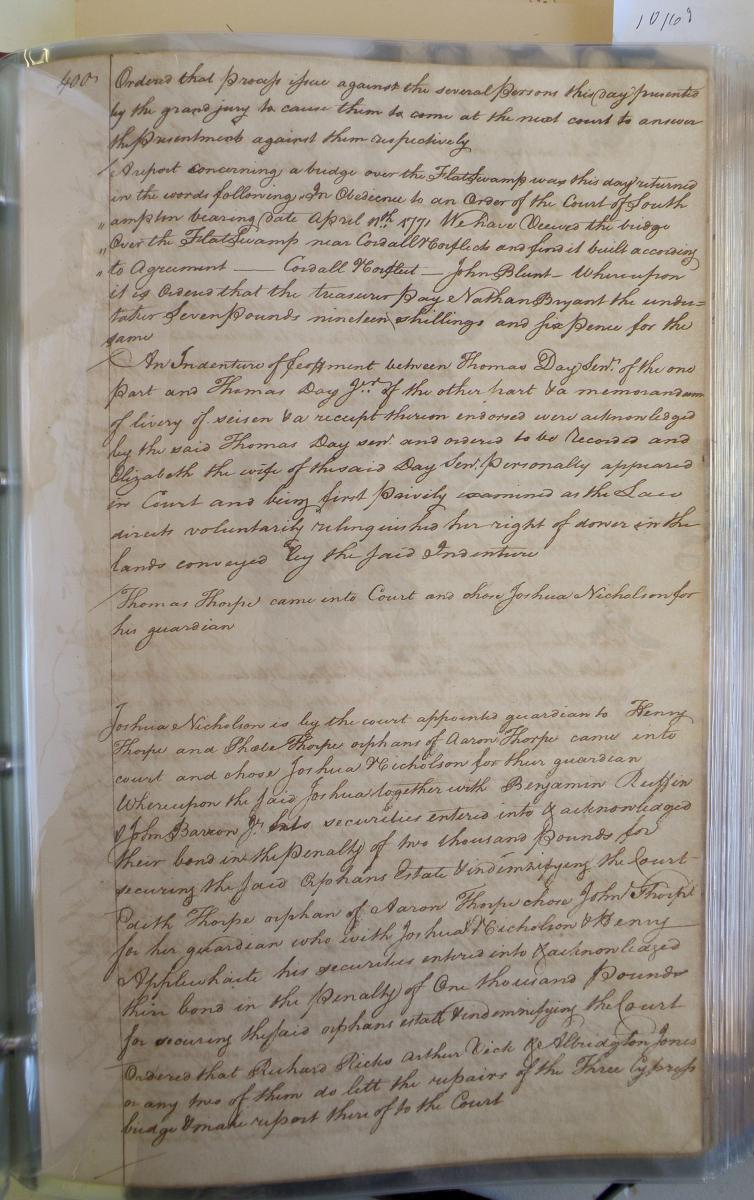 10/69
400
Ordered that process issue against the several persons this day presented
by the grand jury to cause them to come at the next court to answer
the presentments against them respectively
A report concerning a bridge over the Flatt Swamp was this day returned
in the words following In Obedience to an Order of the Court of South
" ampton bearing date April 11th 1771 We have Viewed the bridge
" Over the Flatt Swamp near Cordall Norfleets and find it built according
" to Agreement — Cordall Norfleet — John Blunt — Whereupon
it is Ordered that the treasurer pay Nathan Bryant the under=
taker Seven pounds nineteen shillings and six pence for the
same
An Indenture of feoffment between Thomas Day Senr. of the one
part and Thomas Day Jnr. of the other part & a memorandum
of livery of seisen & a receipt thereon endorsed were acknowledged
by the said Thomas Day senr. and ordered to be Recorded and
Elizabeth the wife of the said Day Senr. personally appeared
in Court and being first privily examined as the Law
directs voluntarily relinquished her right of dower in the
lands conveyed by the said Indenture
Thomas Thorpe came into Court and chose Joshua Nicholson for
his guardian
Joshua Nicholson is by the court appointed guardian to Henry
Thorpe and Phebe Thorpe orphans of Aaron Thorpe came into
court and chose Joshua Nicholson for their guardian
Whereupon the said Joshua together with Benjamin Ruffin
& John Barrow Jr. his securities entered into & acknowledged
their bond in the Penalty of two thousand Pounds for
securing the said Orphans Estate & indemnifying the Court
Edith Thorpe orphan of Aaron Thorpe chose John Thorpe
for her guardian who with Joshua Nicholson & Henry
Applewhaite his securities entered into & acknowledged
their bond in the Penalty of One thousand Pounds
for securing the said orphans estate & indemnifying the Court
Ordered that Richard Ricks Arthur Vick & Albridgton Jones
or any two of them do lett the repairs of the Three Cypress
bridge & make report there of to the Court